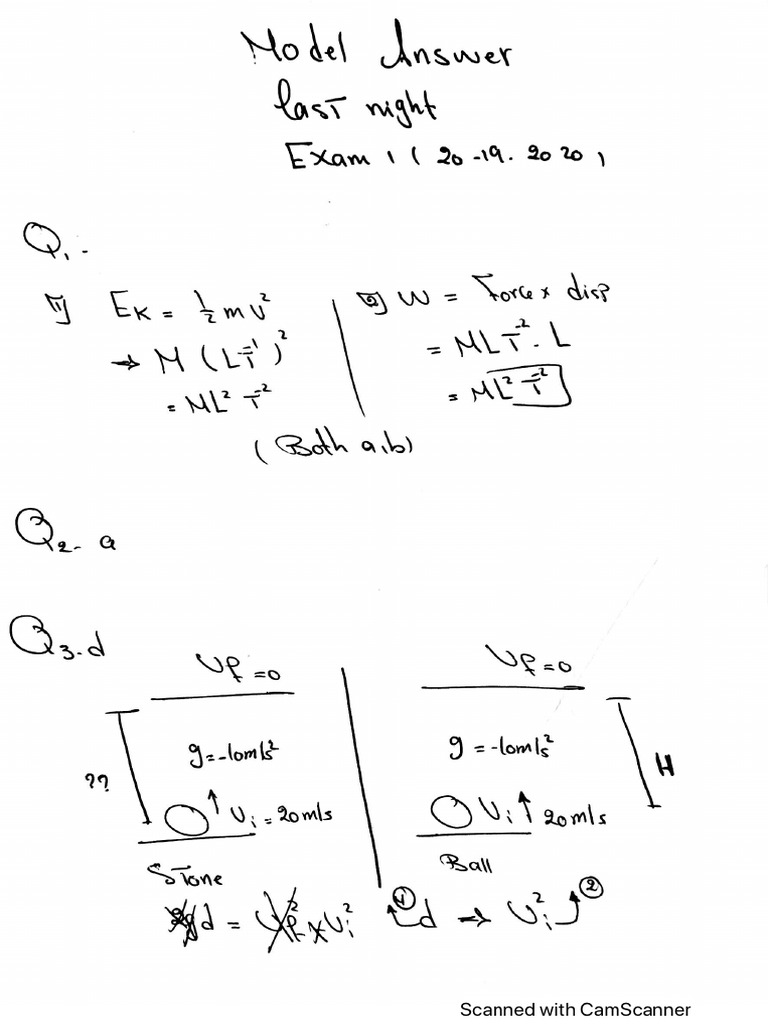 Model Answer
last night
Exam 1 ( 20-19. 2020 )
Q1-
[1] EK = 1/2 m υ²
→ M (LT⁻¹)²
= ML² T⁻²
[2] W = Force x disp
= MLT⁻² . L
= ML² T⁻²
(Both a,b)
Q2- a
Q3-d
υf =0
g=-10m/s²
??
υi = 20m/s
Stone
υf=0
g =-10m/s²
H
υi 20m/s
Ball
2gd = υf² x υi²
① d → υi² ②
Scanned with CamScanner